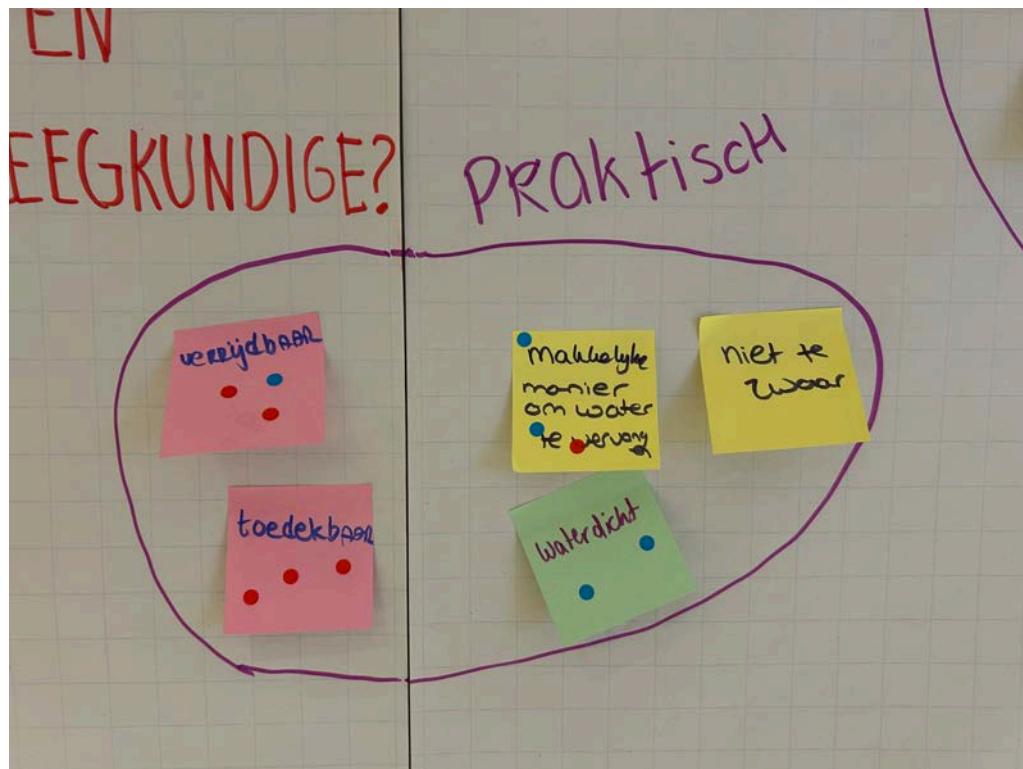 EN
EEGKUNDIGE?
PRAKtiSCH
verrijdbAAR
toedekbAAR
makkelijke
manier
om water
te vervang
niet te
zwaar
waterdicht